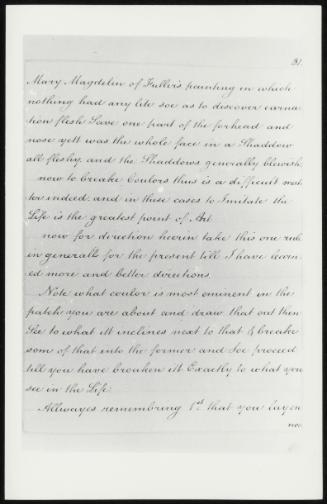 31.
Mary Magdelin of Fuller's painting in which
nothing had any lite soe as to discover carna
tion flesh Save one part of the forhead and
nose yett was the whole face in a Shaddow
all fleshy and the Shaddows generally blewish.
now to breake Coulors thus is a difficult mat
ter indeed. and in these cases to Imitate the
Life is the greatest point of Art.
now for direction herin take this one rule
in generall for the present till I have learn
ed more and better directions.
Note what coulor is most eminent in the
patch you are about and draw that out then
See to what itt inclines next to that & breake
som of that into the former and soe proceed
till you have broaken itt Exactly to what you
see in the Life.
Allwayes remembring 1st that you lay on